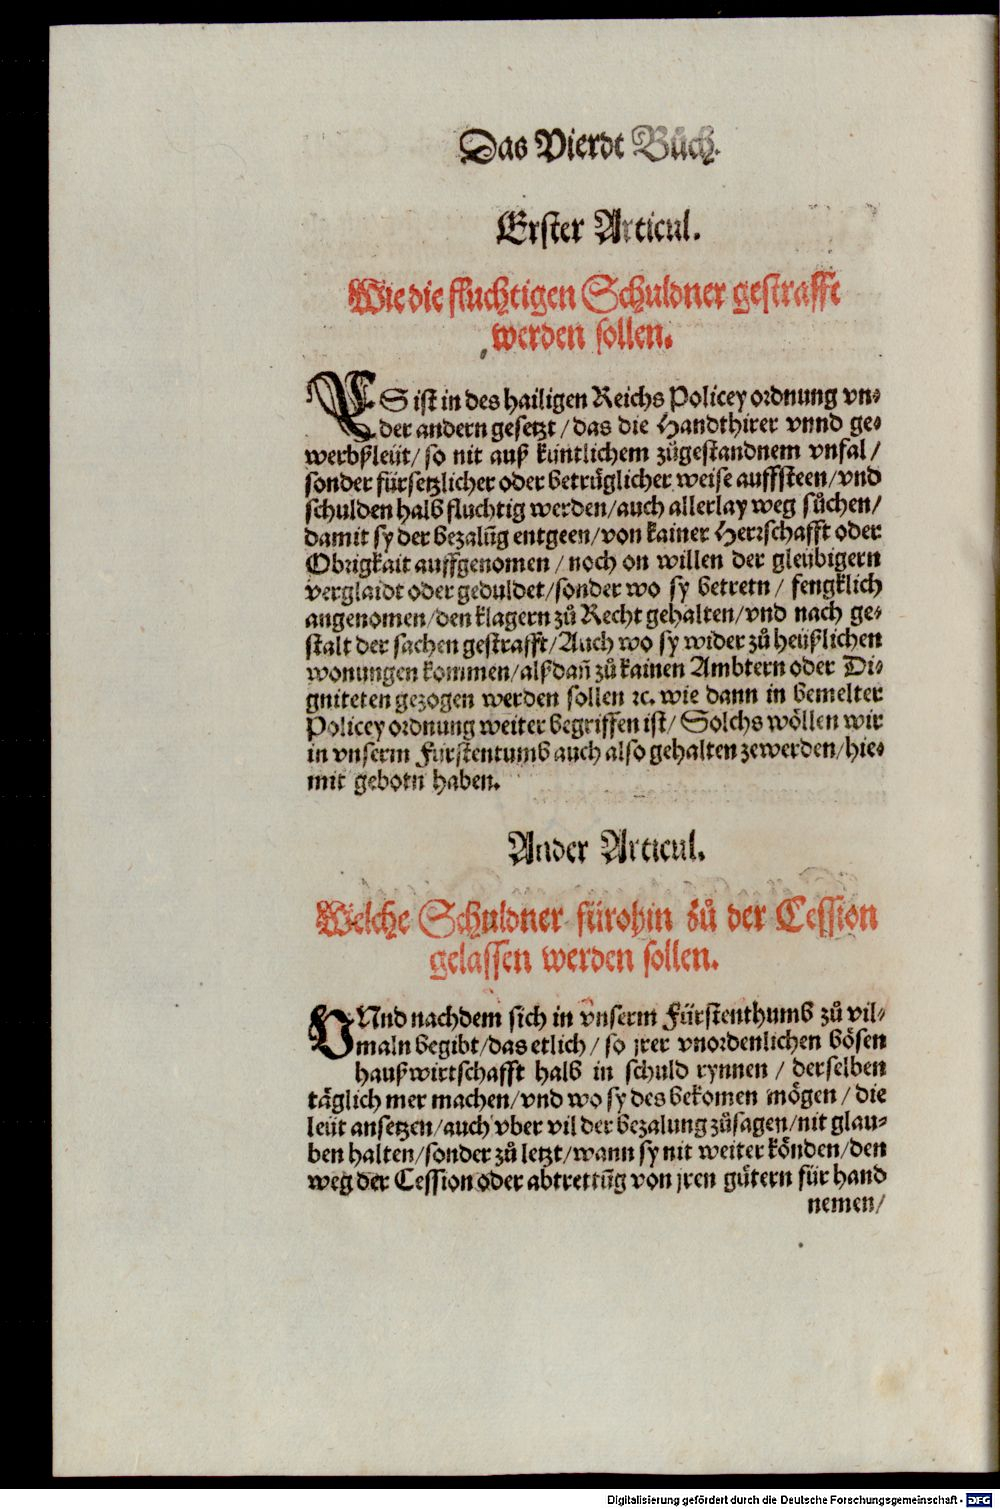 Das Vierdt Bůch.
Erster Articul.
Wie die fluchtigen Schuldner gestrafft
werden sollen.
ES ist in des hailigen Reichs Policey ordnung vn⸗
der andern gesetzt / das die Handthirer vnnd ge⸗
werbßleüt / so nit auß kuntlichem zůgestandnem vnfal /
sonder fürsetzlicher oder betrüglicher weise auffsteen / vnd
schulden halb fluchtig werden / auch allerlay weg sůchen /
damit sy der bezalũg entgeen / von kainer Herrschafft oder
Obrigkait auffgenomen / noch on willen der gleübigern
verglaidt oder geduldet / sonder wo sy betretn / fengklich
angenomen / den klagern zů Recht gehalten / vnd nach ge⸗
stalt der sachen gestrafft / Auch wo sy wider zů heüßlichen
wonungen kommen / alßdañ zů kainen Ambtern oder Di⸗
gniteten gezogen werden sollen ꝛc. wie dann in bemelter
Policey ordnung weiter begriffen ist / Solchs wöllen wir
in vnserm Fürstentumb auch also gehalten zewerden / hie⸗
mit gebotn haben.
Ander Articul.
Welche Schuldner fürohin zů der Cession
gelassen werden sollen.
VNnd nachdem sich in vnserm Fürstenthumb zů vil⸗
maln begibt / das etlich / so jrer vnordenlichen bösen
haußwirtschafft halb in schuld rynnen / derselben
täglich mer machen / vnd wo sy des bekomen mögen / die
leüt ansetzen / auch vber vil der bezalung zůsagen / nit glau⸗
ben halten / sonder zů letzt / wann sy nit weiter könden / den
weg der Cession oder abtrettũg von jren gütern für hand
nemen /
Digitalisierung gefördert durch die Deutsche Forschungsgemeinschaft - DFG